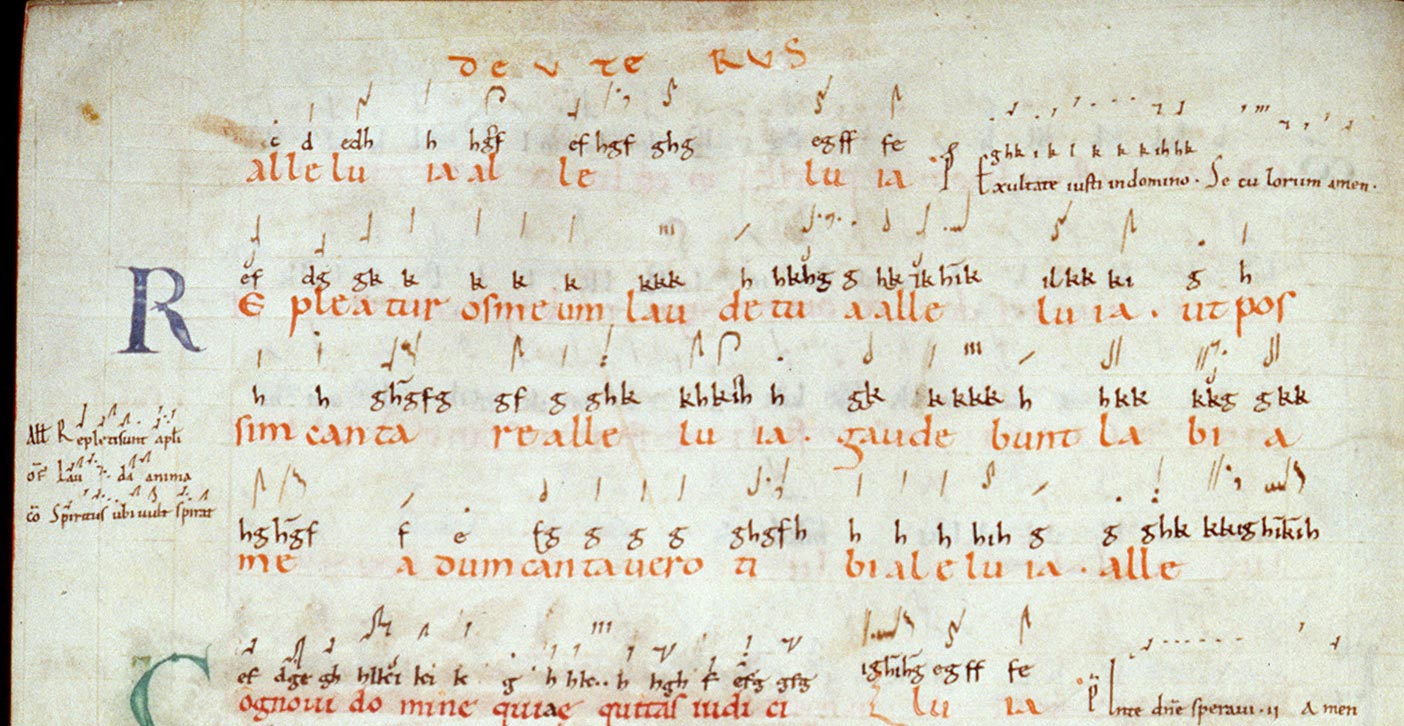 DEUTE RUS
c d edh h hgf ef hgf ghg egff fe
alle lu ia al le lu ia ghk i k l k k k ih hk
Exultate iusti in domino. Se cu lorum amen.
ef dg gk k k k k kkk h hkhg g hk ik hik ilkk ki g h
RE pleatur os meum lau de tu a alle lu ia. ut pos
h h ghgfg gf g ghk khkih h gk k kkkk h hkk kkg gkk
sim canta re alle lu ia. gaude bunt la bi a
All Repleti sunt apli
of Lau da anima
co Sps ubi uult spirat
hghgf f e fg g g g ghgfh h h h hih g g ghk kkighikih
me a dum canta uero ti bi ale lu ia. alle
ef dge gh ki k g h hk.. h hgh f efg gfg ighihg egff fe
Cognoui do mine quiae quitas iudi ci lu ia
In te dne speraui. ii Amen